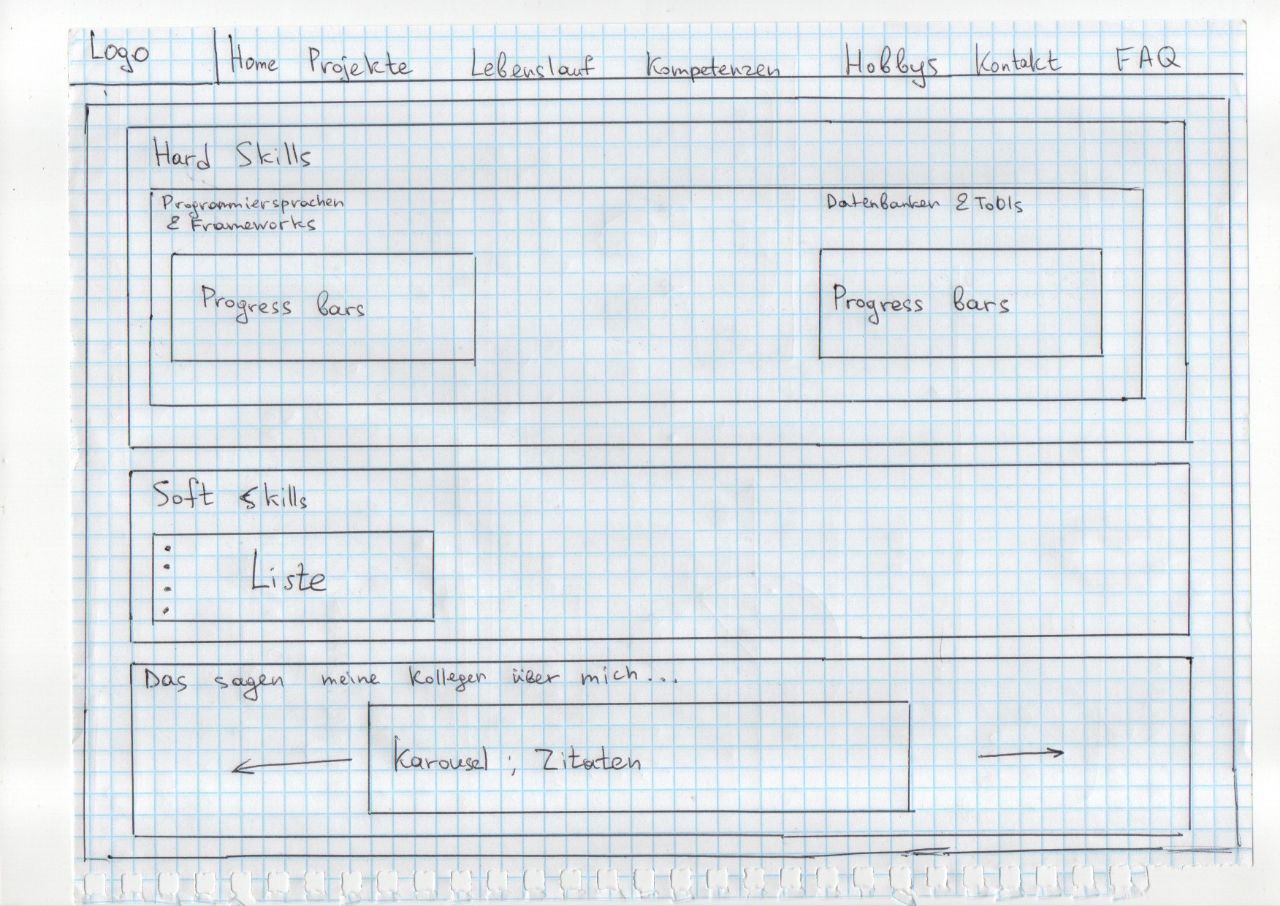 Logo
Home Projekte Lebenslauf Kompetenzen Hobbys Kontakt FAQ
Hard Skills
Programmiersprachen
& Frameworks
Datenbanken & Tools
Progress bars
Progress bars
Soft Skills
Liste
Das sagen meine Kollegen über mich...
Karousel ; Zitaten